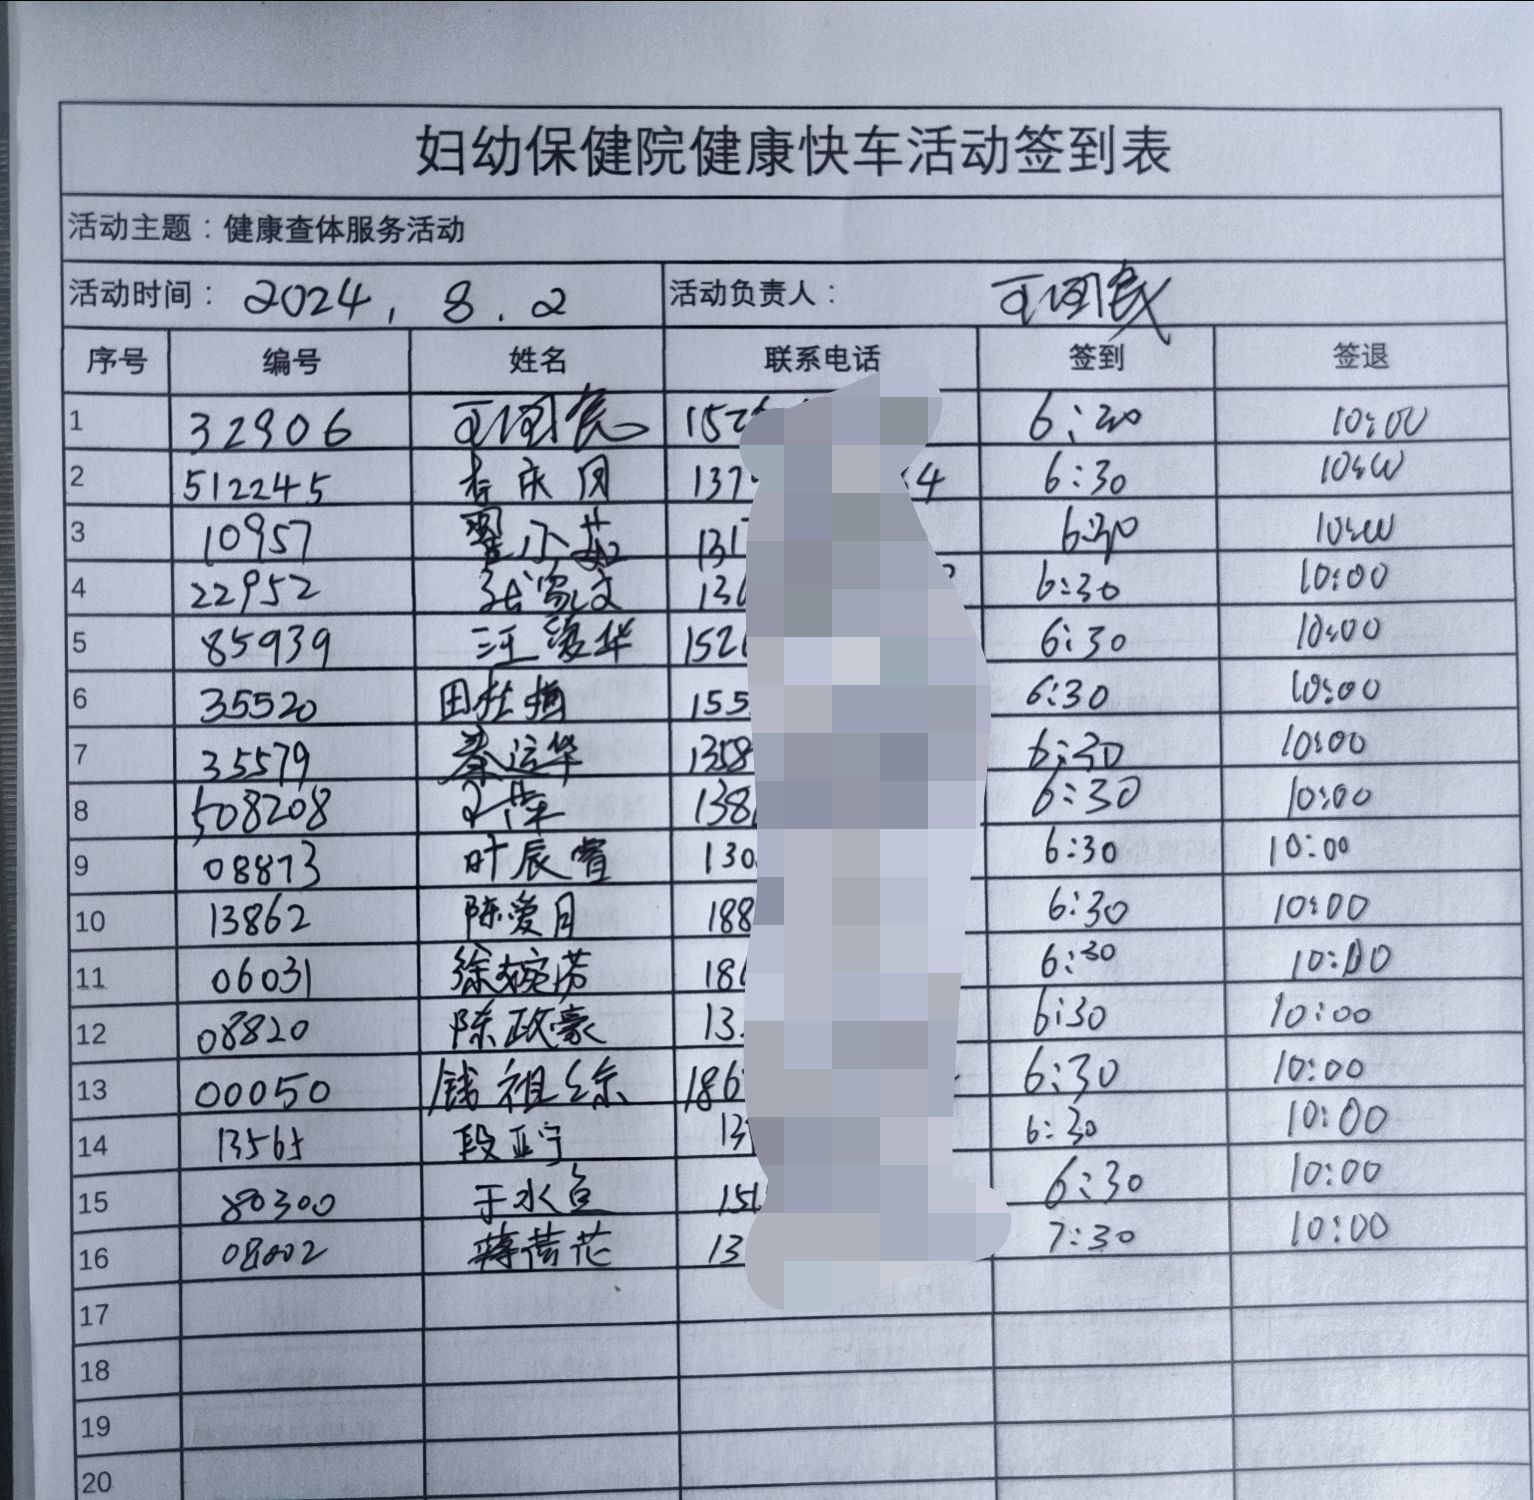 妇幼保健院健康快车活动签到表
活动主题：健康查体服务活动
活动时间： 2024. 8. 2 活动负责人：
序号 编号 姓名 联系电话 签到 签退
1 32906 152 6:30 10:00
2 512245 李庆凤 137 4 6:30 10:00
3 10957 翟小茹 131 6:30 10:00
4 22952 张家文 13 6:30 10:00
5 85939 汪爱华 152 6:30 10:00
6 35520 田杜梅 155 6:30 10:00
7 35579 秦运华 1358 6:30 10:00
8 508208 138 6:30 10:00
9 08873 叶辰萱 130 6:30 10:00
10 13862 陈爱月 188 6:30 10:00
11 06031 徐婉芳 18 6:30 10:00
12 08820 陈政豪 13 6:30 10:00
13 00050 钱祖红 186 6:30 10:00
14 13565 段亚宁 13 6:30 10:00
15 80300 于水鱼 15 6:30 10:00
16 08002 薄荷花 13 7:30 10:00
17
18
19
20